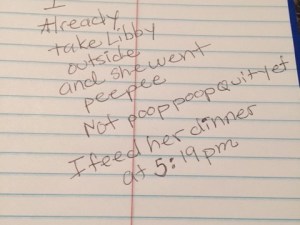 I
Already
take Libby
outside
and she went
peepee
Not poop poop quit yet
I feed her dinner
at 5:19 pm